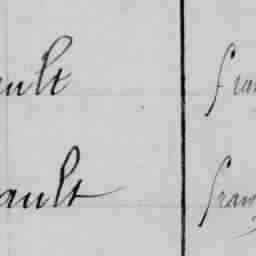 ault fran
ault franç